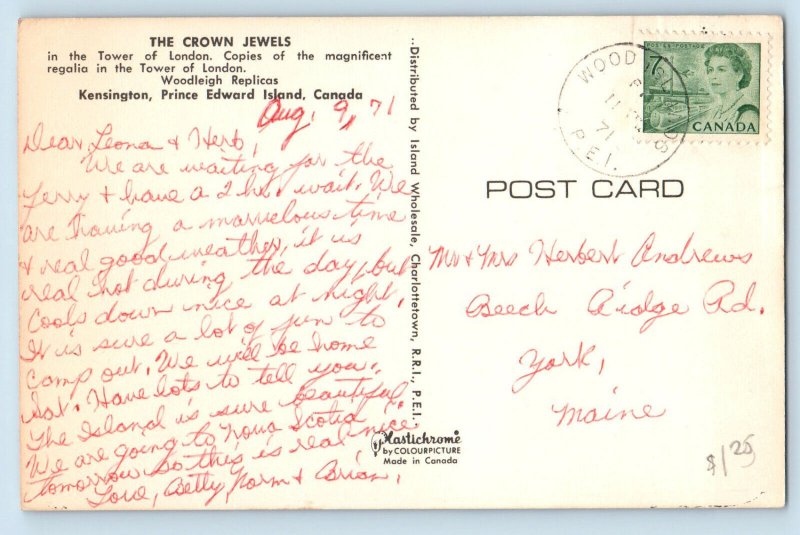 THE CROWN JEWELS
in the Tower of London. Copies of the magnificent
regalia in the Tower of London.
Woodleigh Replicas
Kensington, Prince Edward Island, Canada
Aug. 9, 71
Dear Leona & Herb,
We are waiting for the
ferry & have a 2 hr. wait. We
are having a marvelous time
& real good weather, it is
real hot during the day, but
cools down nice at night.
It is sure a lot of fun to
camp out. We will be home
Sat. Have lots to tell you.
The Island is sure beautiful.
We are going to Nova Scotia
tomorrow so this is real nice
Love, Betty, Norm & Brian.
Distributed by Island Wholesale, Charlottetown, R.R.1., P.E.I.
Plastichrome
by COLOURPICTURE
Made in Canada
WOOD
11
71
P.E.I.
POSTES POSTAGE
7
CANADA
POST CARD
Mr & Mrs Herbert Andrews
Beech Ridge Rd.
York,
Maine
$1 25